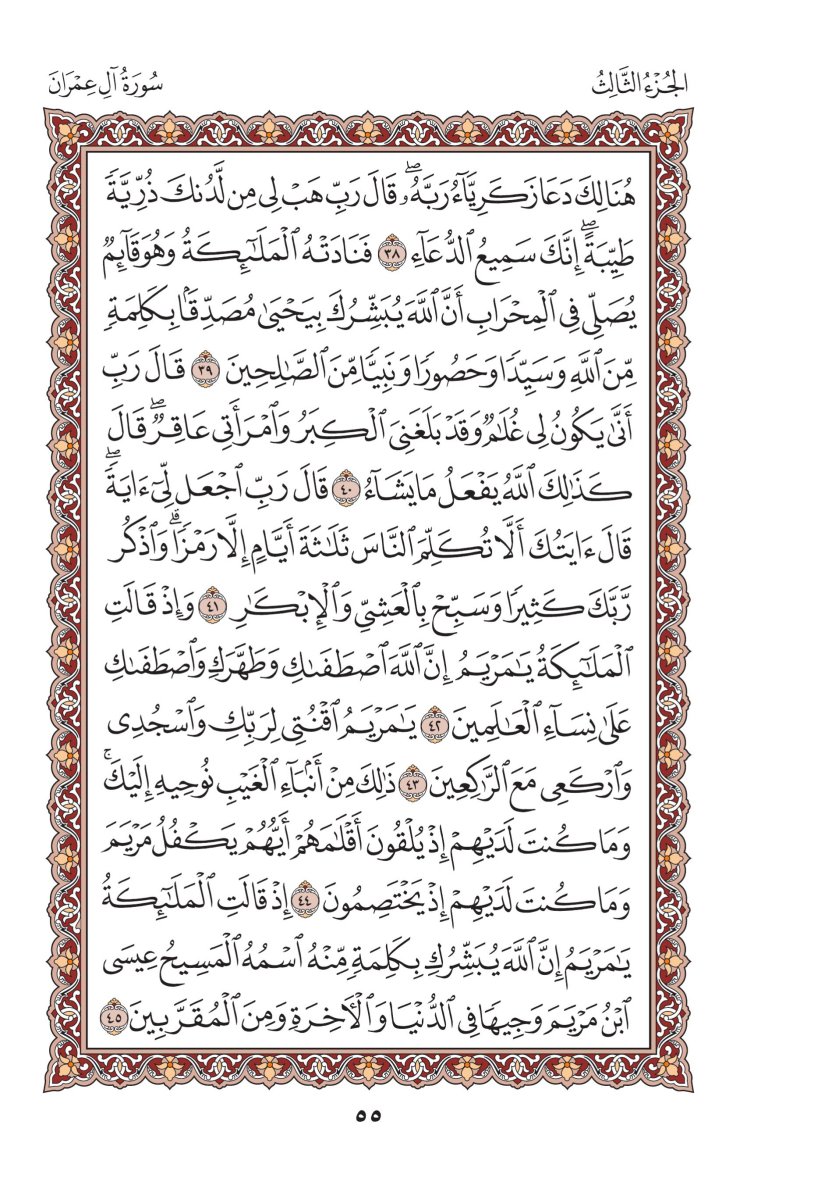 الجُزْءُ الثَّالِثُ
سُورَةُ آلِ عِمْرَانَ
هُنَالِكَ دَعَا زَكَرِيَّآءُ رَبَّهُۥۖ قَالَ رَبِّ هَبْ لِى مِن لَّدُنكَ ذُرِّيَّةً
طَيِّبَةًۖ إِنَّكَ سَمِيعُ ٱلدُّعَآءِ ٣٨ فَنَادَتْهُ ٱلْمَلَٰٓئِكَةُ وَهُوَ قَآئِمٌ
يُصَلِّى فِى ٱلْمِحْرَابِ أَنَّ ٱللَّهَ يُبَشِّرُكَ بِيَحْيَىٰ مُصَدِّقًۢا بِكَلِمَةٍ
مِّنَ ٱللَّهِ وَسَيِّدًا وَحَصُورًا وَنَبِيًّا مِّنَ ٱلصَّٰلِحِينَ ٣٩ قَالَ رَبِّ
أَنَّىٰ يَكُونُ لِى غُلَٰمٌ وَقَدْ بَلَغَنِىَ ٱلْكِبَرُ وَٱمْرَأَتِى عَاقِرٌۖ قَالَ
كَذَٰلِكَ ٱللَّهُ يَفْعَلُ مَا يَشَآءُ ٤٠ قَالَ رَبِّ ٱجْعَل لِّىٓ ءَايَةًۖ
قَالَ ءَايَتُكَ أَلَّا تُكَلِّمَ ٱلنَّاسَ ثَلَٰثَةَ أَيَّامٍ إِلَّا رَمْزًاۗ وَٱذْكُر
رَّبَّكَ كَثِيرًا وَسَبِّحْ بِٱلْعَشِىِّ وَٱلْإِبْكَٰرِ ٤١ وَإِذْ قَالَتِ
ٱلْمَلَٰٓئِكَةُ يَٰمَرْيَمُ إِنَّ ٱللَّهَ ٱصْطَفَىٰكِ وَطَهَّرَكِ وَٱصْطَفَىٰكِ
عَلَىٰ نِسَآءِ ٱلْعَٰلَمِينَ ٤٢ يَٰمَرْيَمُ ٱقْنُتِى لِرَبِّكِ وَٱسْجُدِى
وَٱرْكَعِى مَعَ ٱلرَّٰكِعِينَ ٤٣ ذَٰلِكَ مِنْ أَنۢبَآءِ ٱلْغَيْبِ نُوحِيهِ إِلَيْكَۚ
وَمَا كُنتَ لَدَيْهِمْ إِذْ يُلْقُونَ أَقْلَٰمَهُمْ أَيُّهُمْ يَكْفُلُ مَرْيَمَ
وَمَا كُنتَ لَدَيْهِمْ إِذْ يَخْتَصِمُونَ ٤٤ إِذْ قَالَتِ ٱلْمَلَٰٓئِكَةُ
يَٰمَرْيَمُ إِنَّ ٱللَّهَ يُبَشِّرُكِ بِكَلِمَةٍ مِّنْهُ ٱسْمُهُ ٱلْمَسِيحُ عِيسَى
ٱبْنُ مَرْيَمَ وَجِيهًا فِى ٱلدُّنْيَا وَٱلْءَاخِرَةِ وَمِنَ ٱلْمُقَرَّبِينَ ٤٥
٥٥